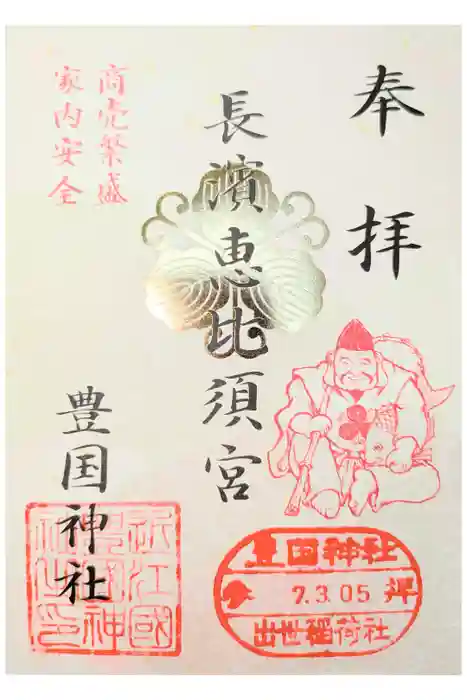 奉拝
長濱恵比須宮
商売繁盛
家内安全
豊国神社
豊国神社
7.3.05 拝
出世稲荷社